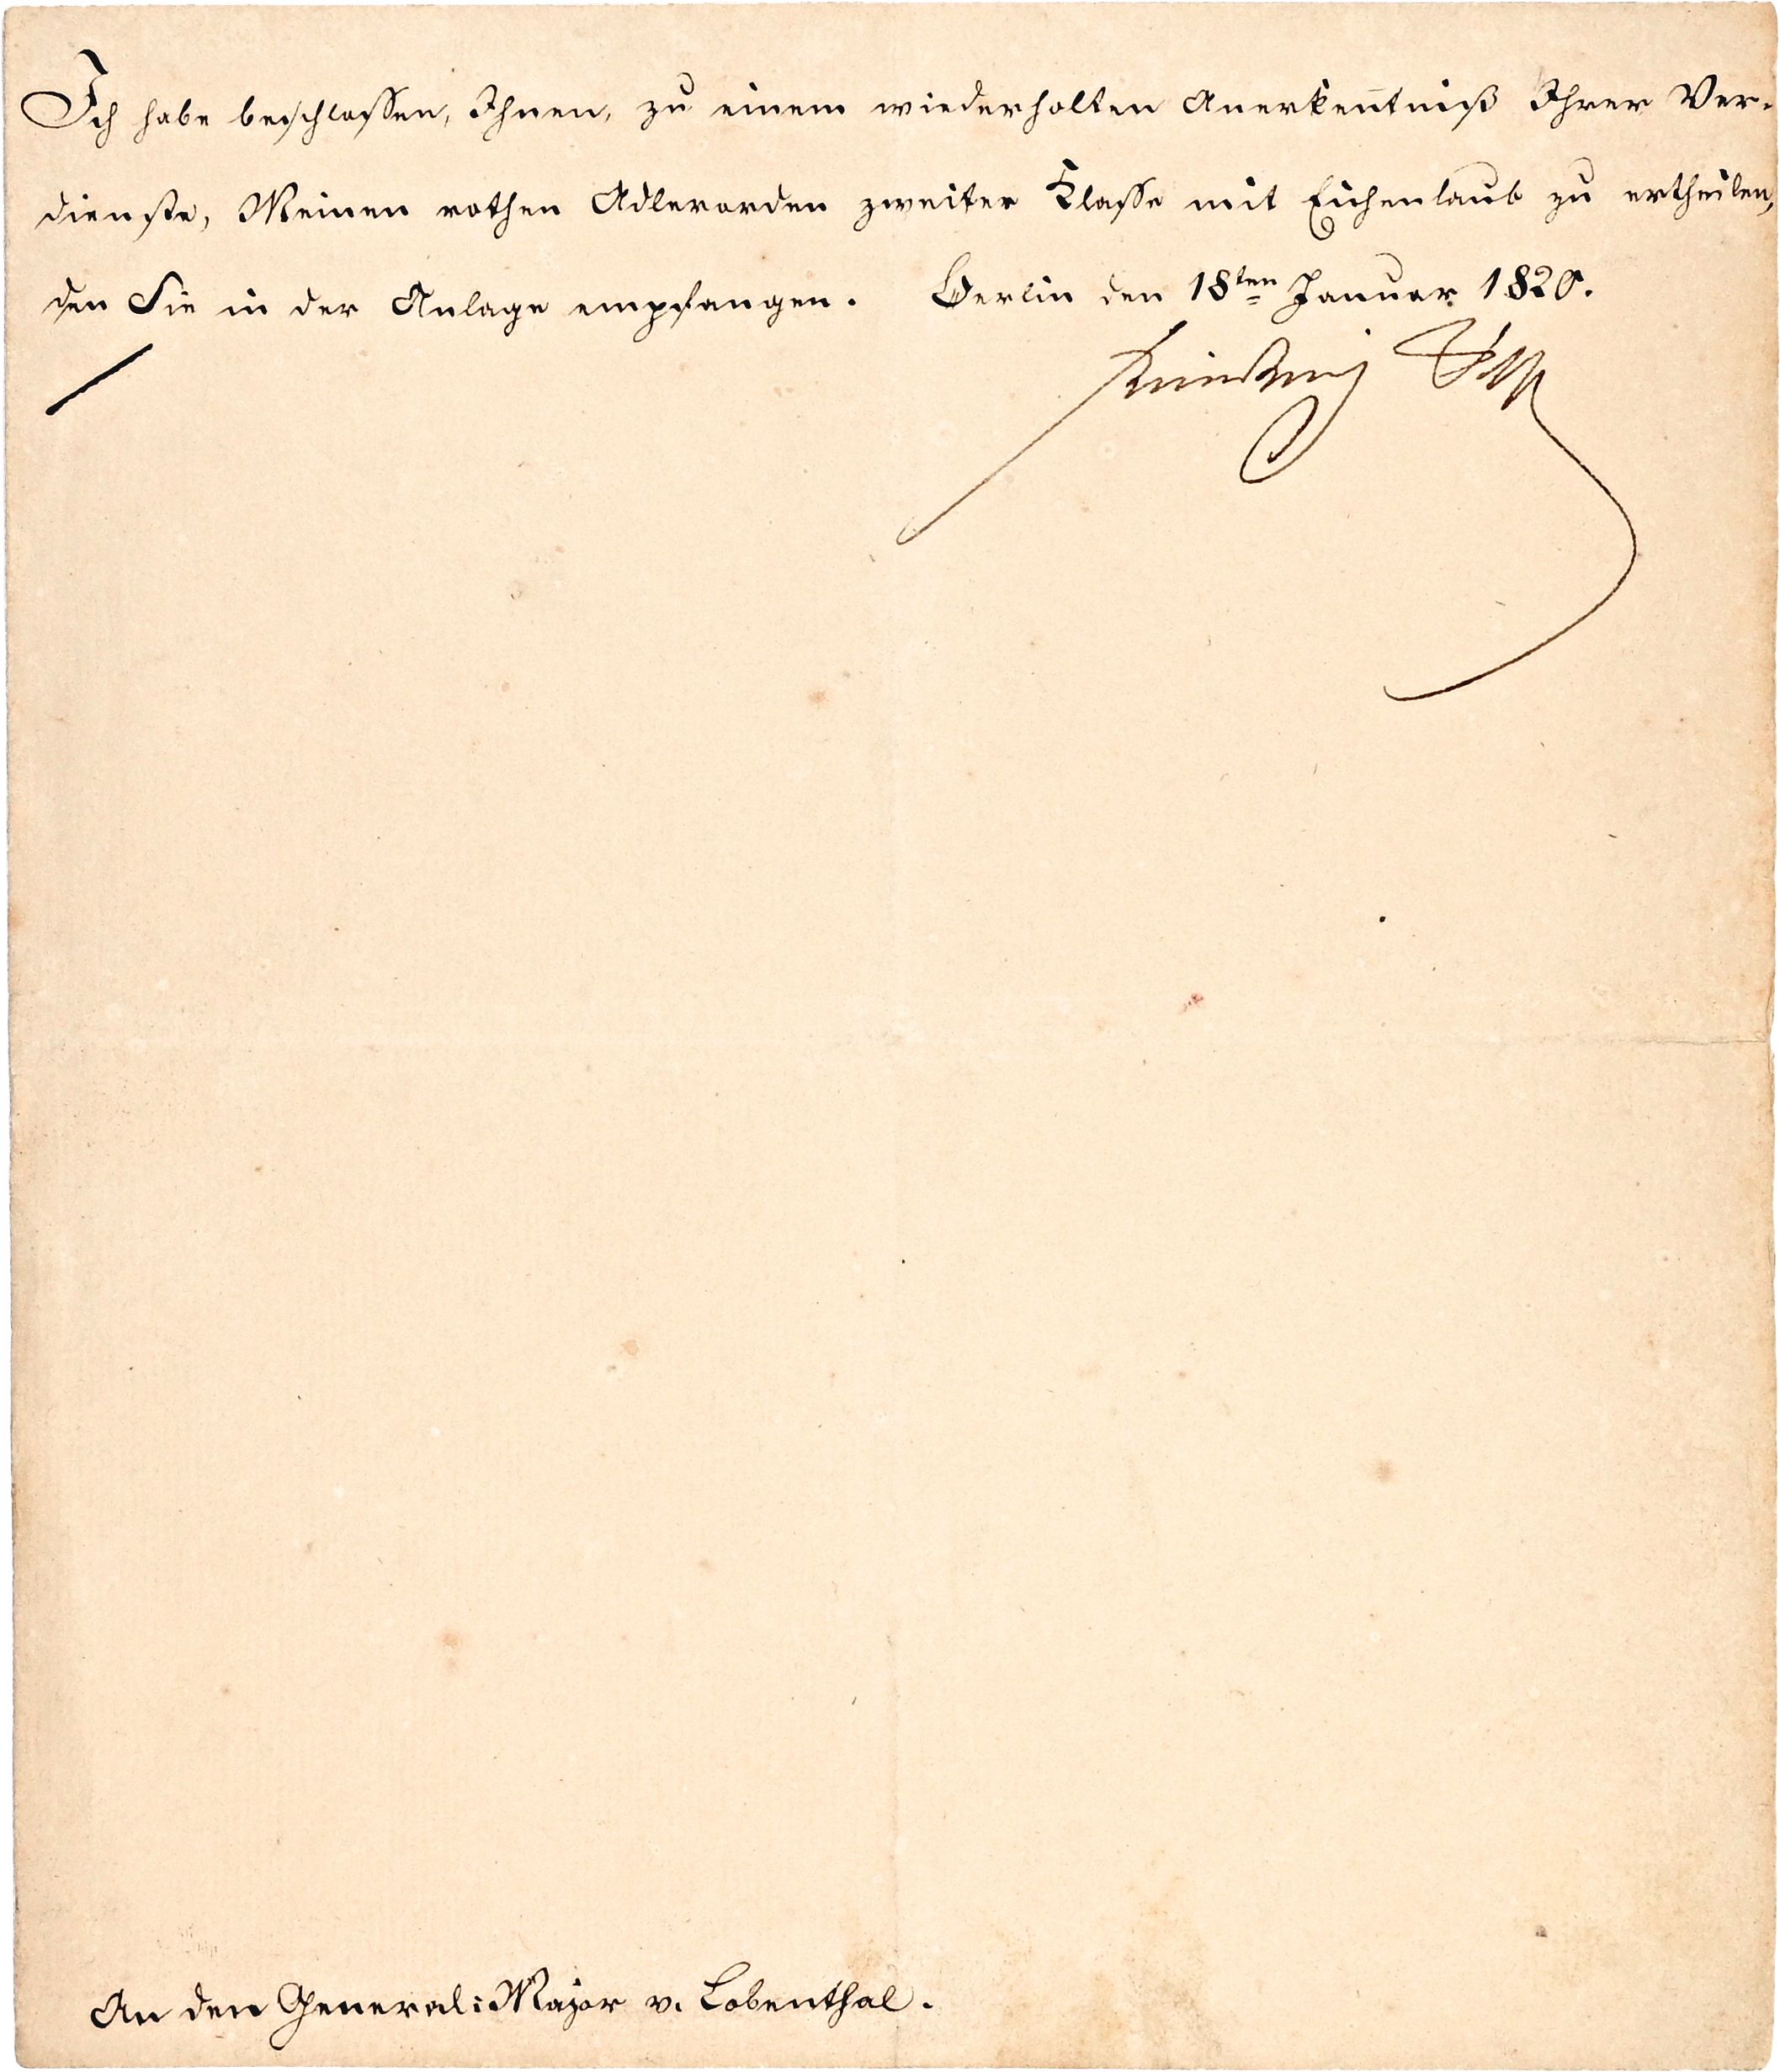 Ich habe beschlossen, Ihnen, zu einem wiederholten Anerkenntniß Ihrer Ver-
dienste, Meinen rothen Adlerorden zweiter Klasse mit Eichenlaub zu ertheilen,
den Sie in der Anlage empfangen. Berlin den 18ten Januar 1820.
Friedrich Wilhelm
An den General-Major v. Lobenthal.